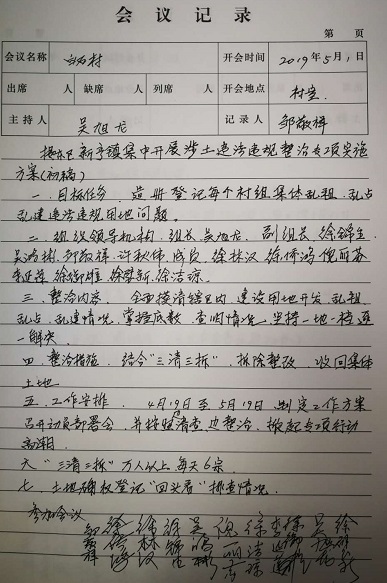 会议记录
第 页
会议名称
村
开会时间 2019年5月1日
出席 人 缺席 人 列席 人 开会地点 村室
主持人 吴旭龙 记录人 邹敬祥
揭东区新亨镇集中开展涉土违法违规整治专项实施
方案(初稿)
一、目标任务 造册登记每个村组集体乱租、乱占
乱建违法违规用地问题。
二、组织领导机构,组长吴旭龙、副组长徐锦
吴鸿彬、邹敬祥、许秋伟,成员、徐林汉、徐
徐洁琼。
三、整治内容、全面摸清辖区内建设用地开发、乱租、
乱占、乱建情况、掌握底数、查明情况、坚持一地一档逐
一解决
四、整治措施、结合“三清三拆”、拆除整改、收回集体
土地
五、工作安排、4月19日至5月19日制定工作方案
召开动员部署会、并按照边清查边整治、掀起专项行动
高潮。
六、“三清三拆”万人以上每天6宗
七、土地确权登记“回头看”排查情况。
参加会议